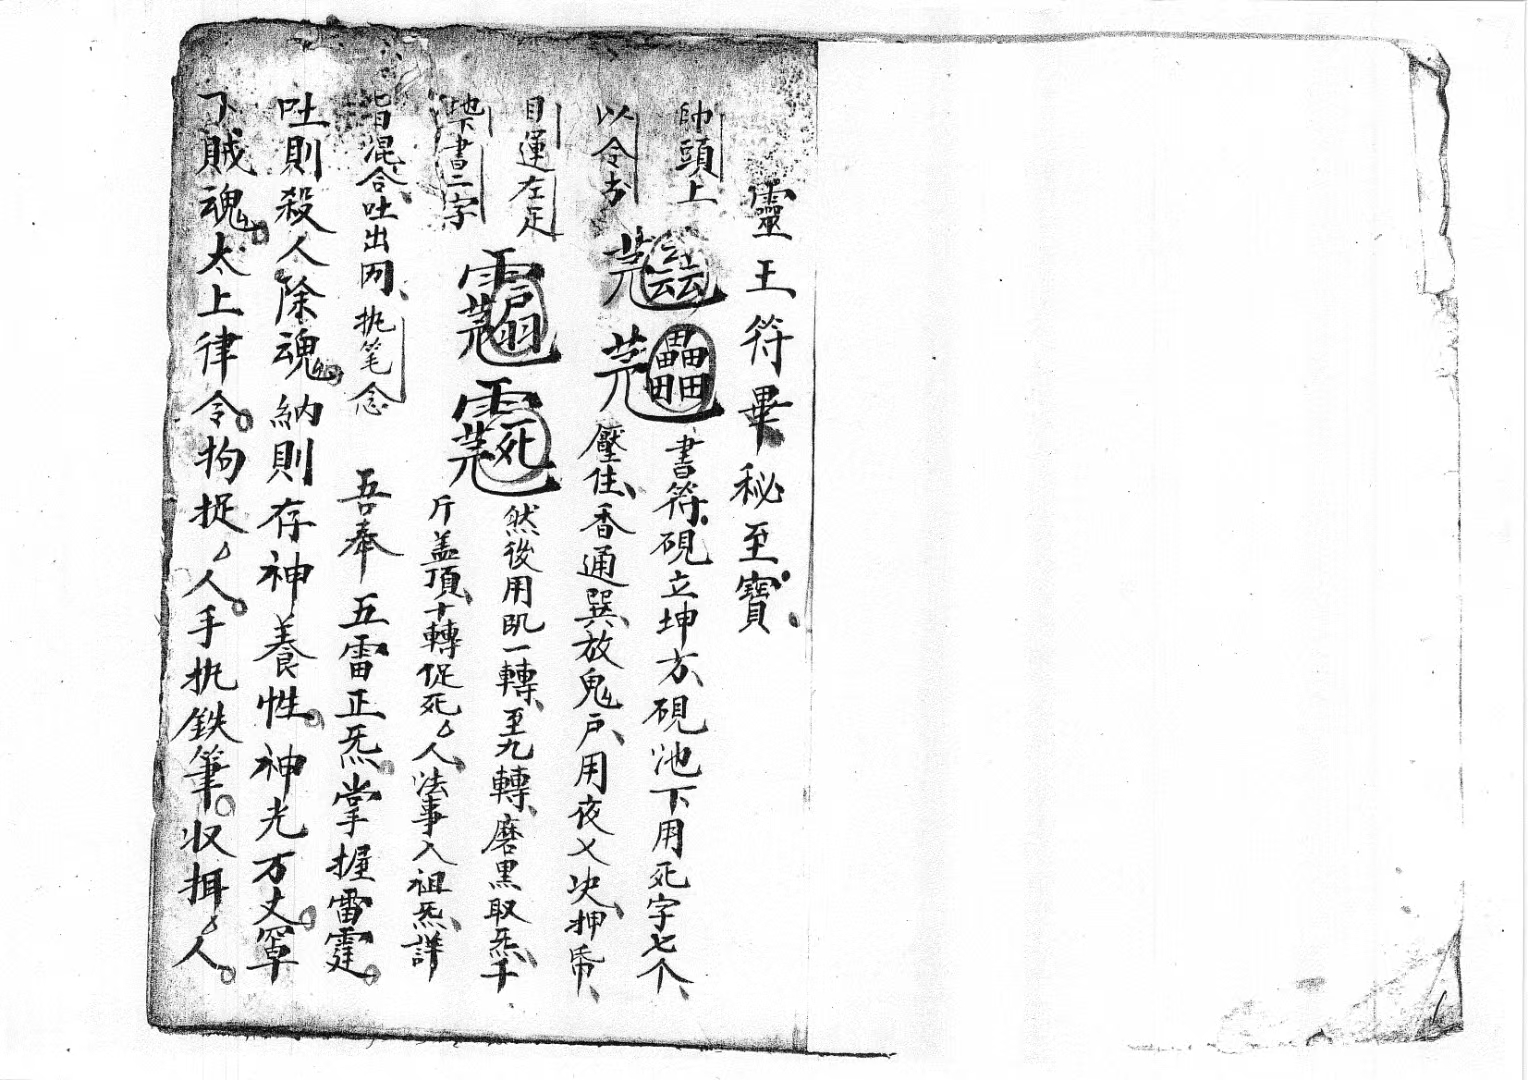 靈王符畢秘至寶
帥頭上 書符硯立坤方硯池下用死字七个
以令书 壓住香通巽放鬼戶用夜乂决押
目運左足 然後用一轉至九轉磨黑取炁千
地下書二字 斤盖頂十轉促死厶人法事入祖炁詳
皆混合吐出 执笔念 吾奉五雷正炁掌握雷霆
吐則殺人除魂納則存神養性神光万丈罩
下賊魂太上律令拘捉厶人手执鉄筆収厶人